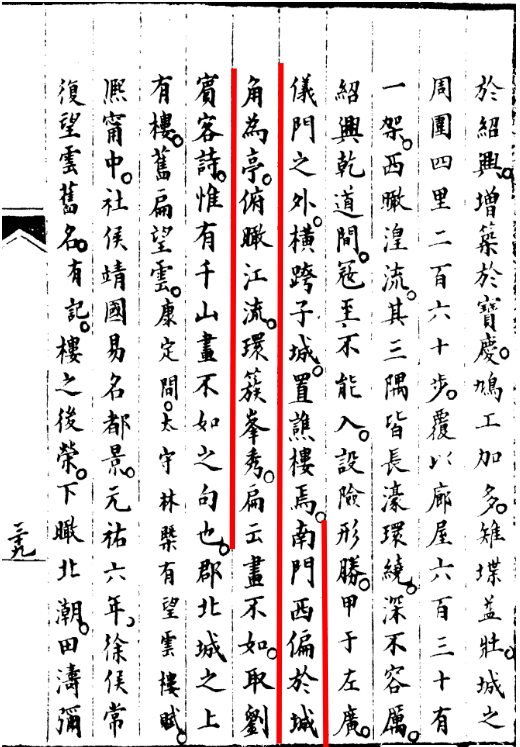 於紹興。增築於寶慶。鳩工加多。雉堞益壯。城之
周圍四里二百六十步。覆以廊屋六百三十有
一架。西瞰湟流。其三隅皆長濠環繞。深不容厲。
紹興乾道間。冦至不能入。設險形勝。甲于左廣。
儀門之外。橫跨子城。置譙樓焉。南門西偏於城
角為亭。俯瞰江流。環簇峯秀。扁云畫不如。取劉
賓客詩。惟有千山畫不如之句也。郡北城之上
有樓。舊扁望雲。康定間。太守林槩有望雲樓賦。
熈甯中。社侯靖國易名都景。元祐六年、徐侯常
復望雲舊名。有記。樓之後榮。下瞰北潮。田濤彌
三九